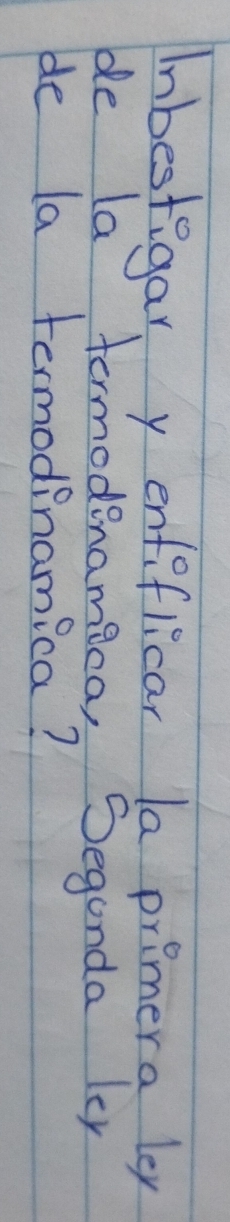 Inbestigar y entiflicar la primera ley
de la termodinamica, Segunda ley
de la termodinamica?